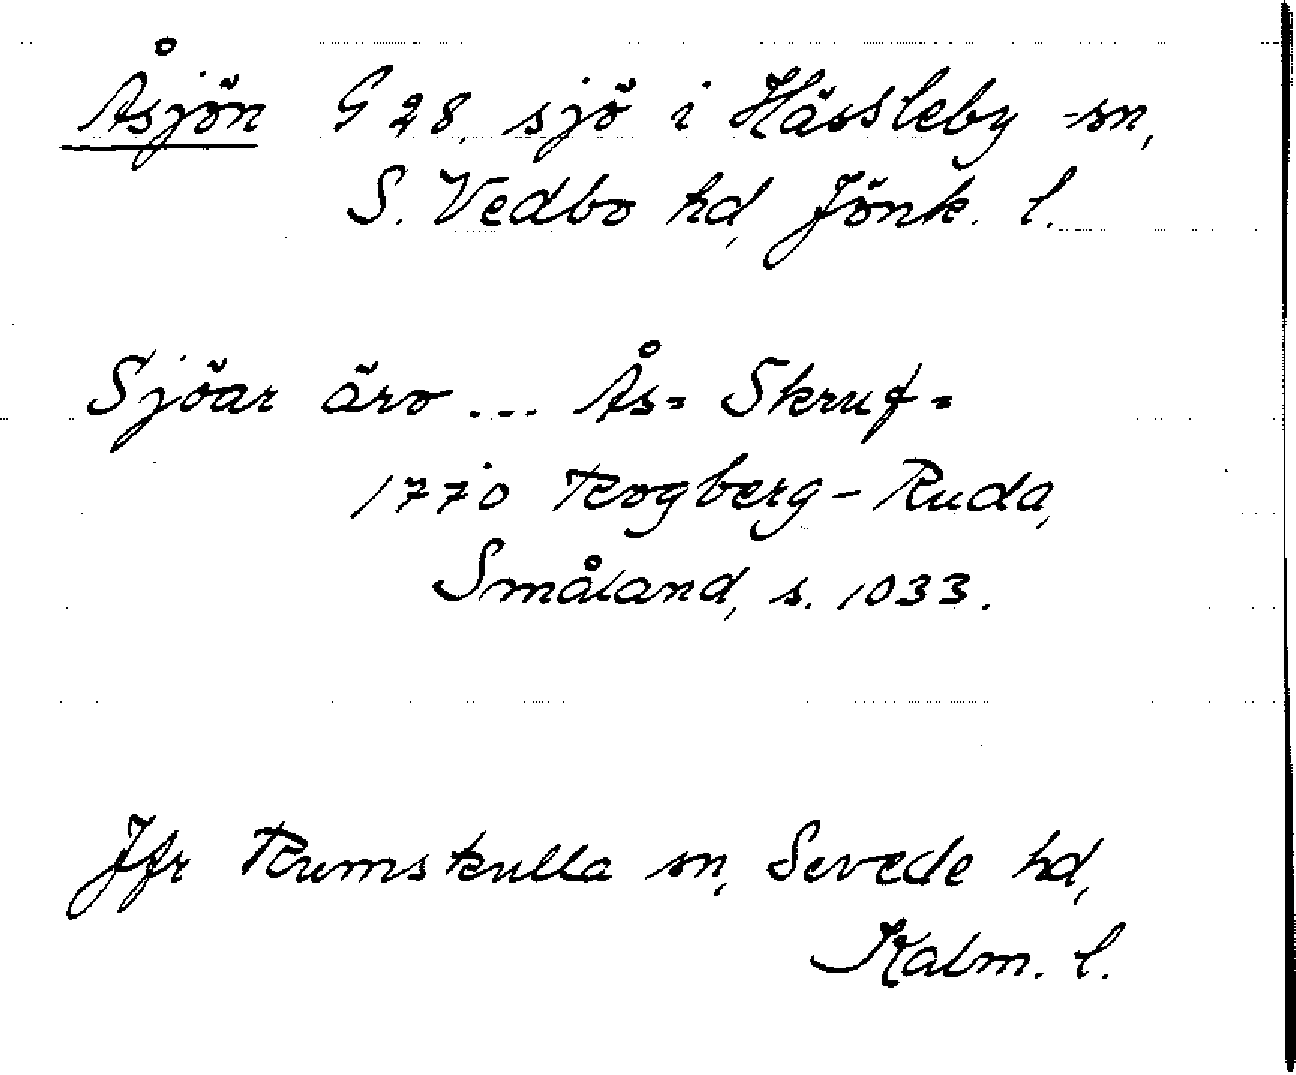 Åsjön G 28, sjö i Hässleby sn,
S. Vedbo hd, Jönk. l.
Sjöar äro ... Ås= Skruf=
1770 Rogberg-Ruda,
Småland, s. 1033.
Jfr Rumskulla sn, Sevede hd,
Kalm. l.